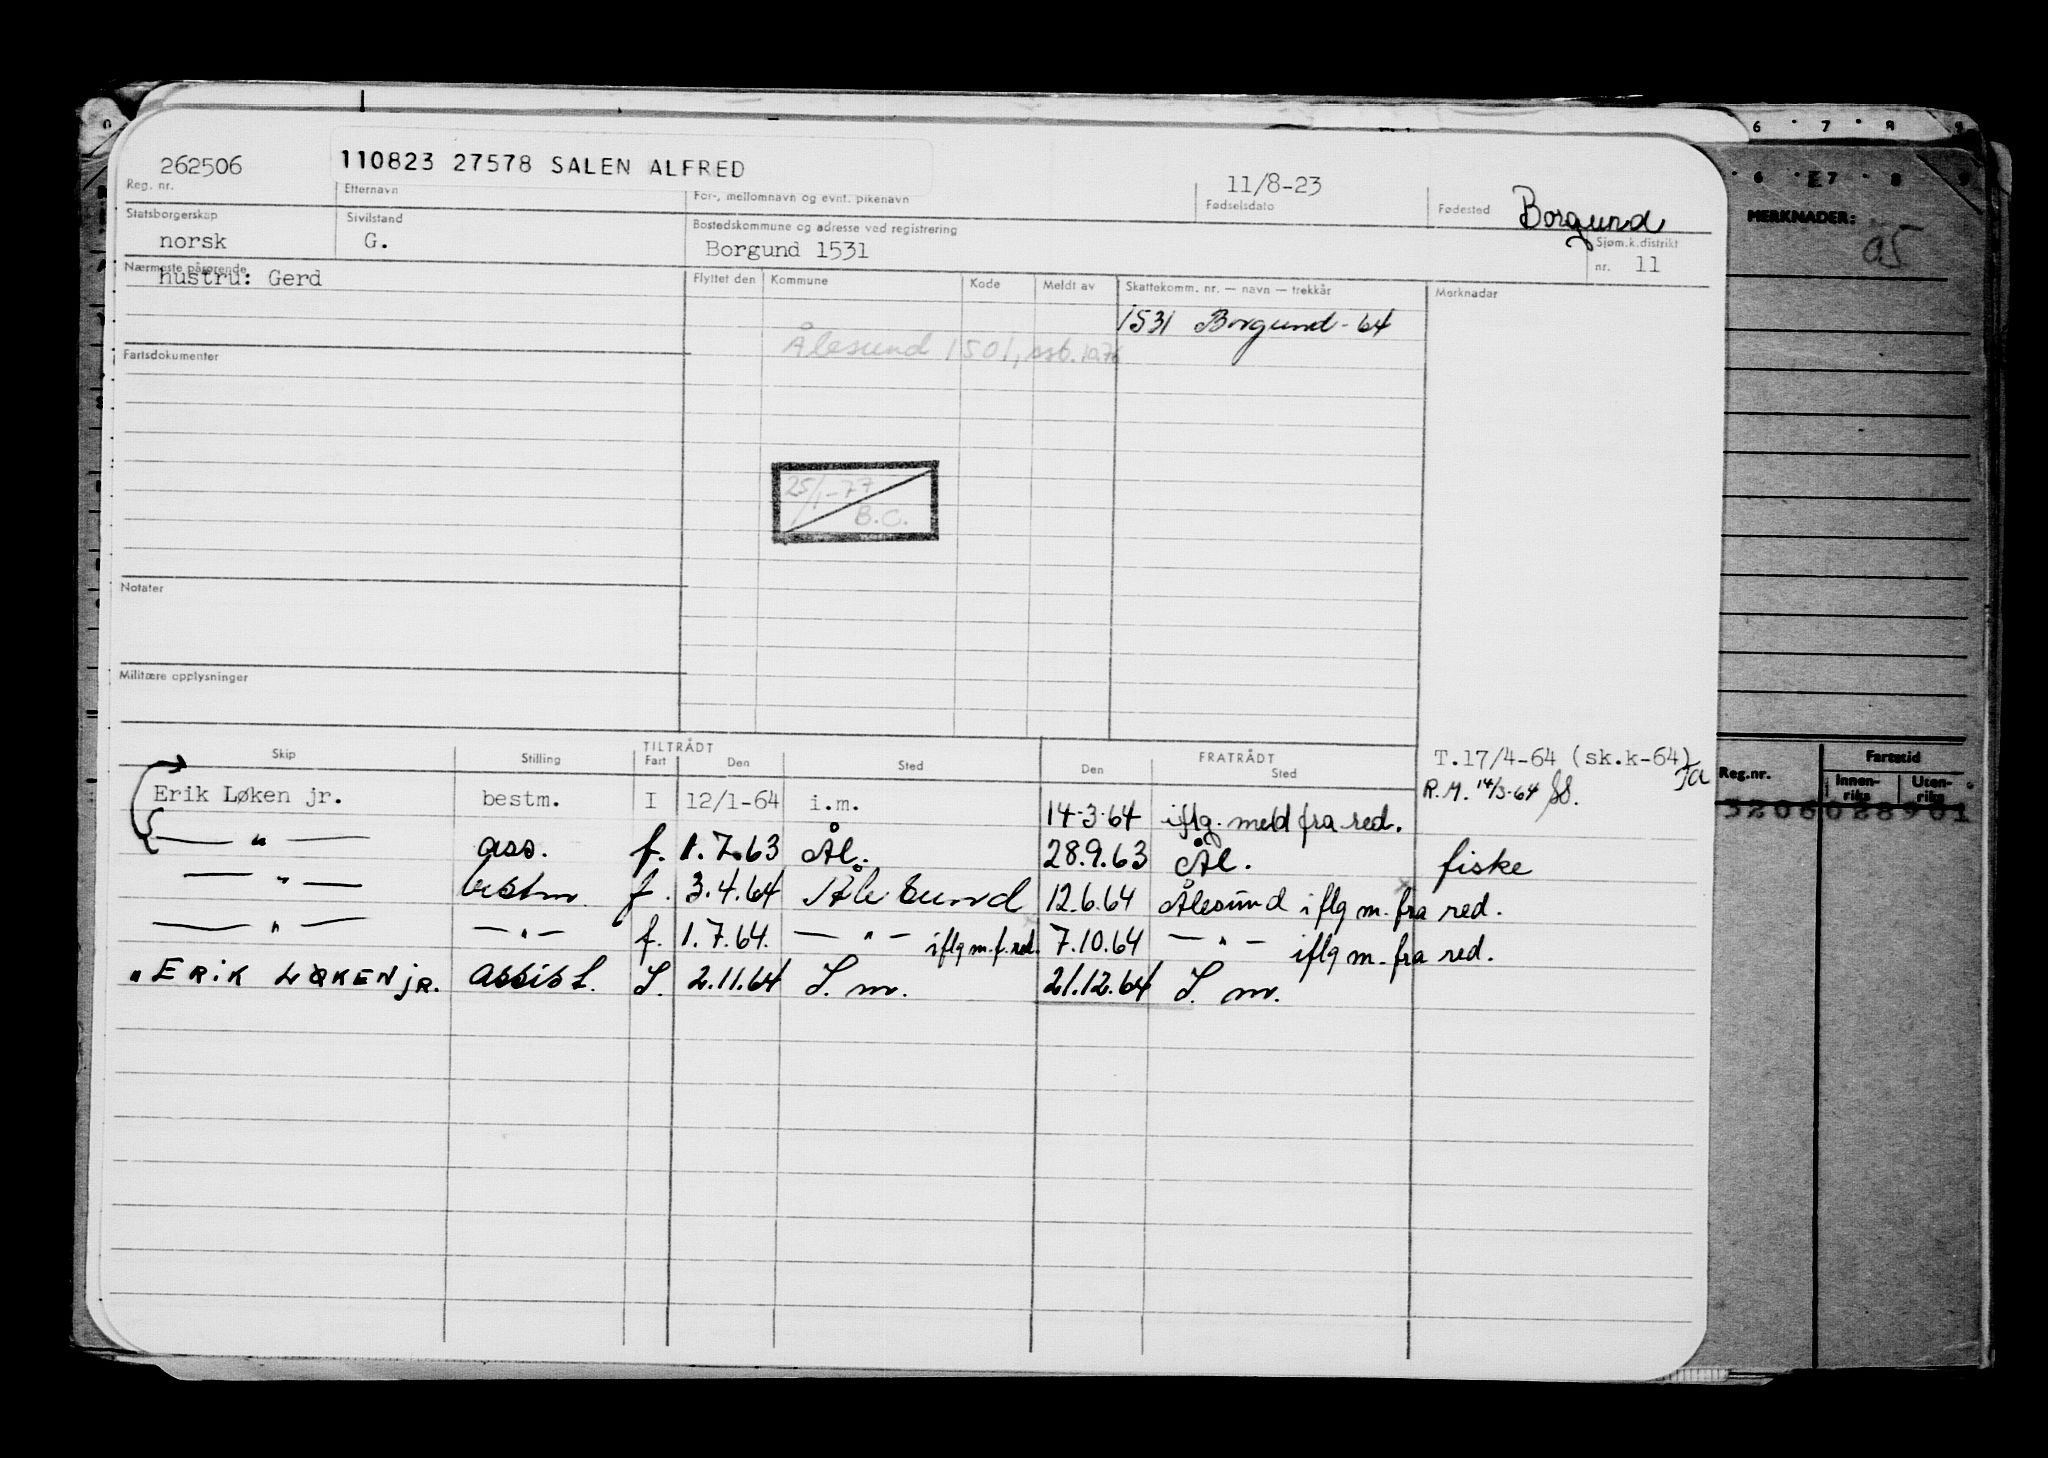 262506 110823 27578 SALEN ALFRED 11/8-23 Borgund
Reg. nr. Etternavn For-, mellomnavn og evnt. pikenavn Fødselsdato Fødested
Statsborgerskap Sivilstand Bostedskommune og adresse ved registrering Sjøm.k.distrikt
norsk G. Borgund 1531 nr. 11
Nærmeste pårørende Flyttet den Kommune Kode Meldt av Skattekomm. nr. — navn — trekkår Merknader
hustru: Gerd
1531 Borgund - 64
Ålesund 1501, ssb. 1976
Fartsdokumenter
25/1-77
B.C.
Notater
Militære opplysninger
TILTRÅDT FRATRÅDT
Skip Stilling Fart Den Sted Den Sted
T.17/4-64 (sk.k-64)
R.M. 14/3-64
Erik Løken jr. bestm. I 12/1-64 i.m. 14-3-64 iflg. meld fra red.
— " — ass. f. 1.7.63 Ål. 28.9.63 Ål. fiske
— " — bestm. f. 3.4.64 Ålesund 12.6.64 Ålesund iflg m. fra red.
— " — — " — f. 1.7.64. — " — iflg m. f. red. 7.10.64 — " — iflg m. fra red.
" ERIK LØKEN jR. assist. I. 2.11.64 I. m. 21.12.64 I. m.
6 7 8 9
6 E7 8 9
MERKNADER:
05
Reg.nr. Fartstid
Innen-
riks Uten-
riks
3206028901